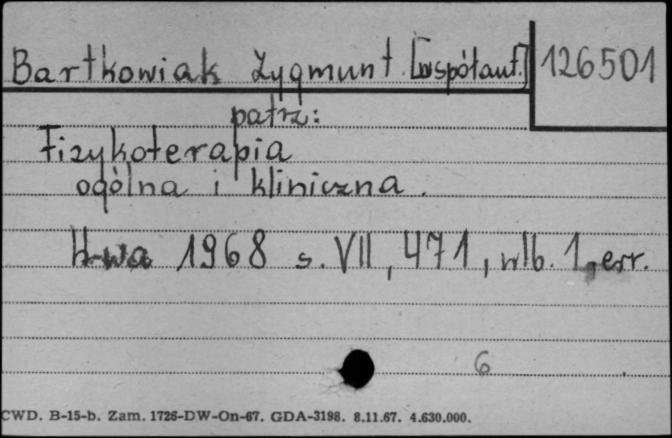 Bartkowiak Zygmunt [współaut.] 126501
patrz:
Fizykoterapia
ogólna i kliniczna.
W-wa 1968 s. VII, 471, nlb. 1, err.
6
CWD. B-15-b. Zam. 1726-DW-On-67. GDA-3198. 8.11.67. 4.630.000.